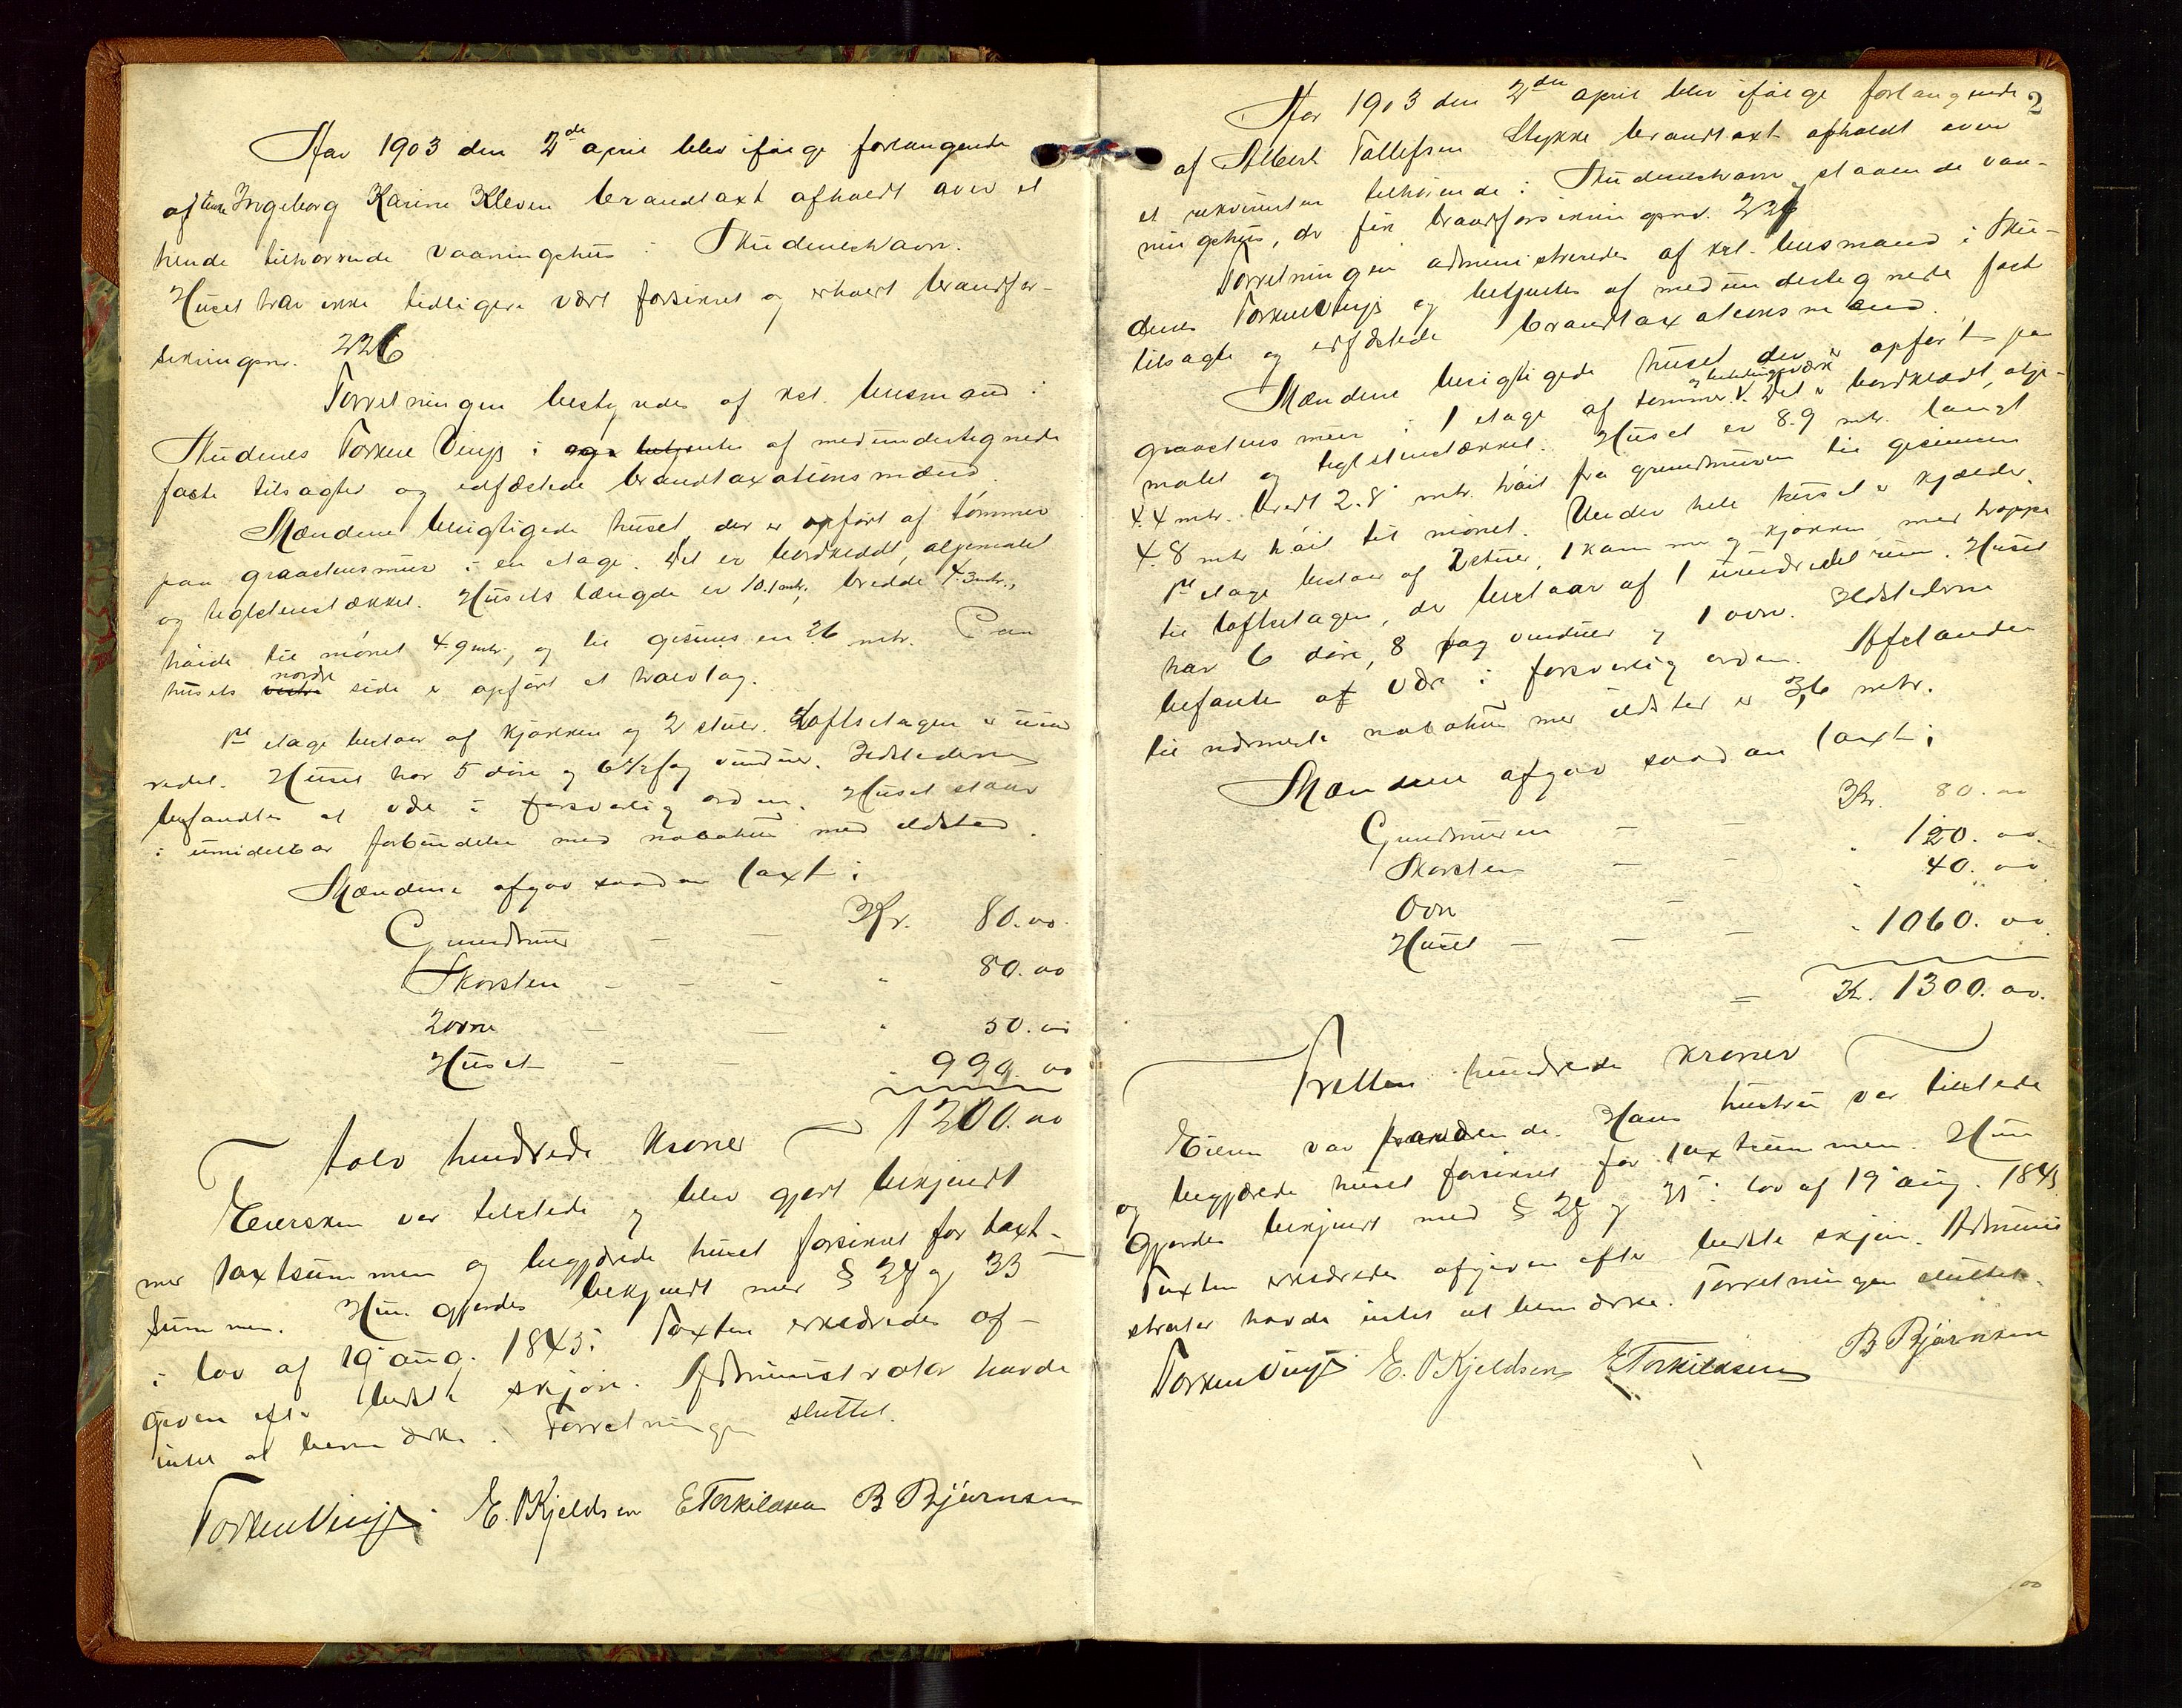 Aar 1903 den 2de april blev ifølge forlangende
af Enke Ingeborg Karine Kleven brandtaxt afholdt over et
hende tilhørende vaaningshus i Skudeneshavn.
Huset har ikke tidligere vært forsikret og erholdt brandfor-
sikringsnr. 226
Forretningen bestyredes af kst. lensmand i
Skudenes Torkel Vinje i og betjentes af medundertegnede
faste tilsagte og edfæstede brandtaxationsmænd.
Mændene besigtigede huset, der er opført af tømmer
paa graastensmur i en etage. Det er bordklædt, oljemalet
og teglstenstækket. Husets længde er 10.1 mtr., bredde 4.3 mtr.,
høide til mønet 4.9 mtr., og til gesims en 26 mtr. Paa
husets vestre nordre side er opført et halvtag.
1ste etage bestaar af kjøkken og 2 stuer. Loftsetagen er uind
redet. Huset har 5 døre og 6½ fag vinduer. Ildstederne
befandtes at være i forsvarlig orden. Huset staar
i umidelbar forbindelse med nabohus med ildsted.
Mændene afgav saadan taxt:
Grundmur — — Kr. 80.00
Skorsten — — — " 80.00
2 ovne — — " 50.00
Huset — — " 990.00
1200.00
Tolv hundrede kroner
Eiersken var tilstede og blev gjort bekjendt
med taxtsummen og begjærede huset forsikret for taxt-
summen. Hun gjordes bekjendt med § 28 og 35
i lov af 19 aug. 1845. Taxten erklæredes af-
given efter bedste skjøn. Administrator havde
intet at bemærke. Forretningen sluttet.
Torkel Vinje. E. O Kjeldsen E Torkildsen B Bjørnsen
2
Aar 1903 den 2den april blev ifølge forlangende
af Albert Tollefsen Stykke brandtaxt afholdt over
et rekvirenten tilhørende i Skudeneshavn staaende vaa-
ningshus, der fik brandforsikringsnr. 227
Forretningen administreredes af kst. lensmand i Sku-
denes Torkel Vinje og betjentes af medundertegnede fast
tilsagte og edfæstede brandtaxationsmænd.
Mændene besigtigede huset der er opført paa
graastens mur i 1 etage af tømmer og bindingsværk. Det er bordklædt, olje-
malet og teglstenstækket. Huset er 8.9 mtr. langt
4.4 mtr. bredt 2.8 mtr. høit fra grundmuren til gesimsen
4.8 mtr høit til mønet. Under hele huset er kjælder.
1ste etage bestaar af 2 stuer, 1 kammer og kjøkken med trappe
til loftsetagen, der bestaar af 1 uindredet rum. Huset
har 6 døre, 8 fag vinduer og 1 ovn. Ildstederne
befantes at være i forsvarlig orden. Afstanden
til nærmeste nabohus med ildsted er 3,6 mtr.
Mændene afgav saadan taxt:
Grundmuren — — Kr. 80.00
Skorsten — — " 120.00
Ovn — " 40.00
Huset — — — " 1060.00
= Kr. 1300.00.
Tretten hundrede kroner
Eieren var fraværende. Hans hustru var tilstede
og begjærede huset forsikret for taxtsummen. Hun
gjordes bekjendt med § 28 og 35 i lov af 19 aug. 1845
Taxten erklæredes afgiven efter bedste skjøn. Admini
strator havde intet at bemærke. Forretningen sluttet.
Torkel Vinje E. O Kjeldsen E Torkildsen B Bjørnsen